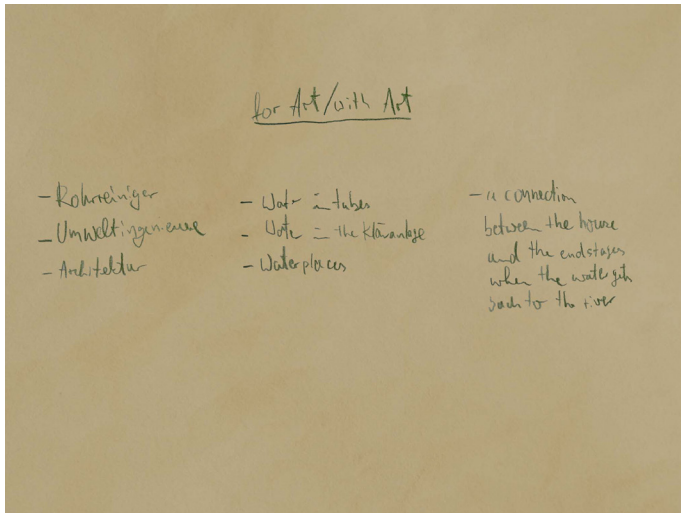 for Art/with Art
- Rohrreiniger
- Umweltingenieure
- Architektur
- Water in tubes
- Water in the Kläranlage
- Waterplaces
- a connection
between the house
and the endstages
when the water gets
back to the river